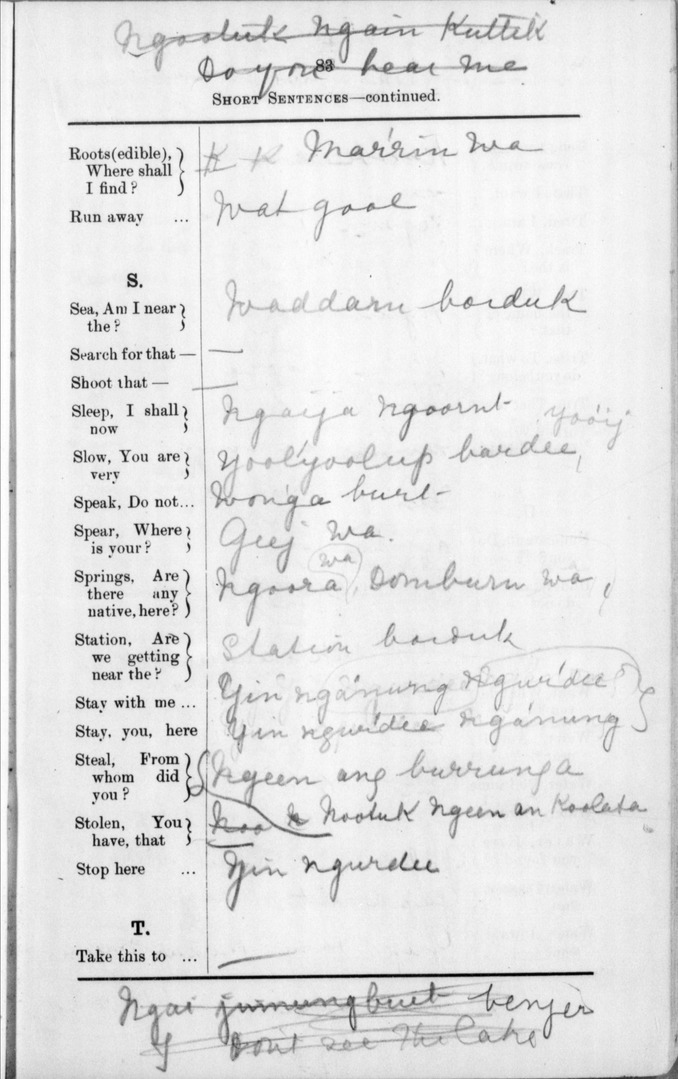 Ngooluk Ngain Kuttik
Do you hear me
83
SHORT SENTENCES—continued.
Roots(edible), Where shall I find? K K Mar'rin wa
Run away ... Wat gool
S.
Sea, Am I near the? Waddarn borduk
Search for that — —
Shoot that — —
Sleep, I shall now Ngaija Ngoornt yoo'ij
Slow, You are very Yool'yoolup bardee,
Speak, Do not... Won'ga burt
Spear, Where is your? Geej wa.
wa
Springs, Are there any native, here? Ngoora, Domburn wa,
Station, Are we getting near the? Station borduk
Stay with me ... Yin ngan'yung Ngur'dee
Stay, you, here Yin ngur'dee ngánung
Steal, From whom did you? Ngeen ang burrunga
Stolen, You have, that Noo N Nooluk Ngeen an Koolata
Stop here ... Yin Ngurdee
T.
Take this to ... —
Ngai burt benjer
I Don't see The Lake